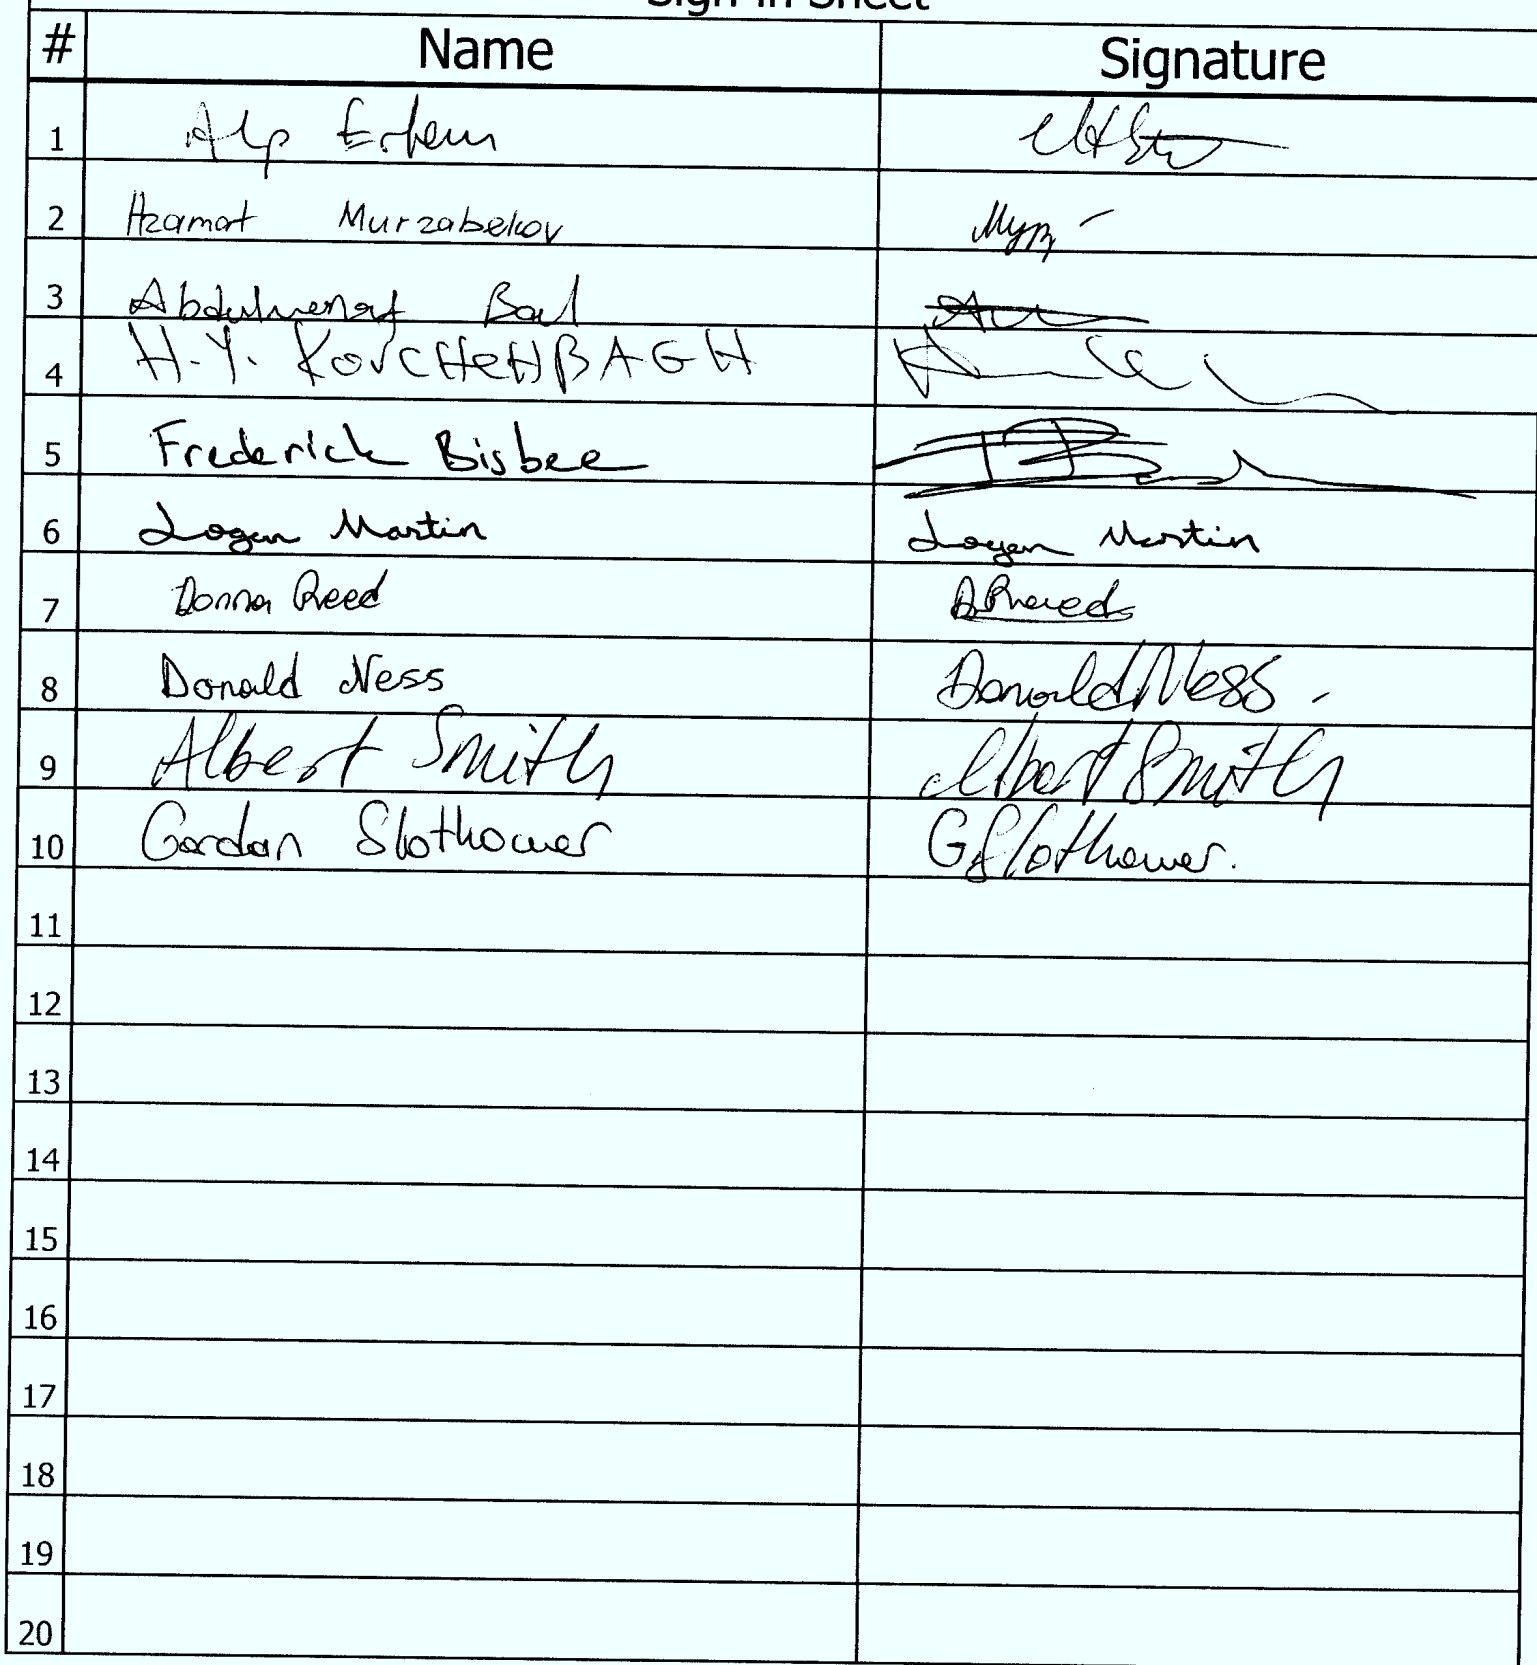 Sign-in Sheet
# Name Signature
1 Alp Ertem
2 Azamat Murzabekov
3 Abdulmenaf Bal
4 H.Y. KOVCHEHBAGH
5 Frederick Bisbee
6 Logan Martin Logan Martin
7 Donna Reed
8 Donald Ness Donald Ness
9 Albert Smith Albert Smith
10 Gordan Slothower G Slothower.
11
12
13
14
15
16
17
18
19
20